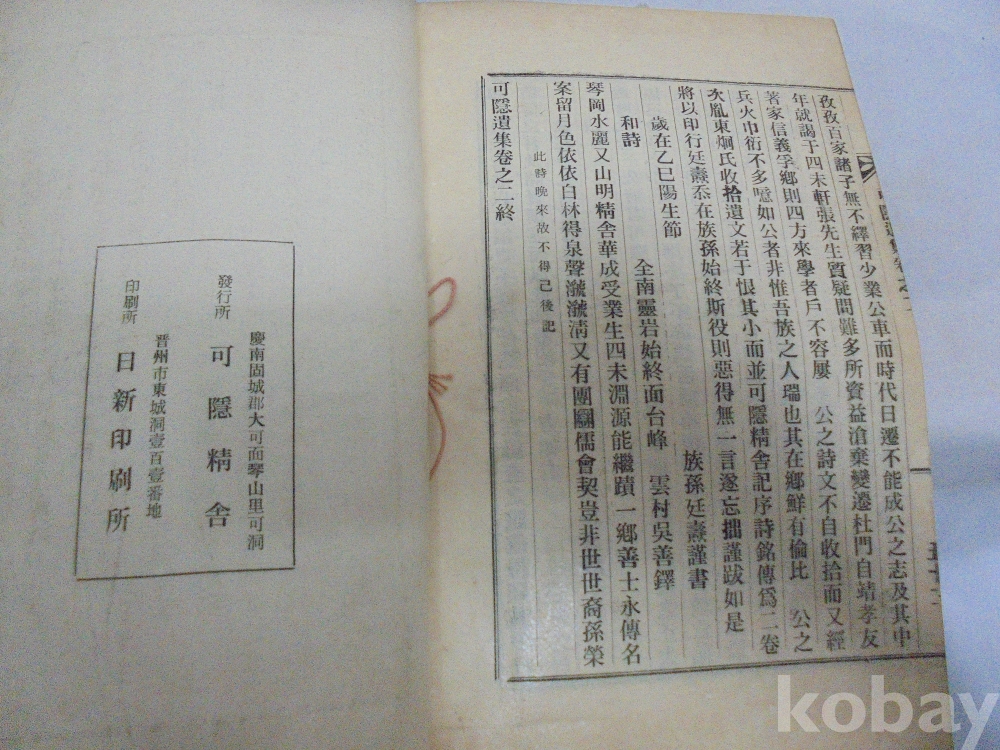 孜孜百家諸子無不繹習少業公車而時代日遷不能成公之志及其中
年就謁于四未軒張先生質疑問難多所資益滄桑變遷杜門自靖孝友
著家信義孚鄕則四方來學者戶不容屨 公之詩文不自收拾而又經
兵火巾衍不多噫如公者非惟吾族之人瑞也其在鄕鮮有倫比 公之
次胤東炯氏收拾遺文若于恨其小而並可隱精舍記序詩銘傳爲二卷
將以印行廷燾忝在族孫始終斯役則惡得無一言遂忘拙謹跋如是
歲在乙巳陽生節 族孫廷燾謹書
和詩 全南靈岩始終面台峰 雲村吳善鐸
琴岡水麗又山明精舍華成受業生四未淵源能繼蹟一鄕善士永傳名
案留月色依依白林得泉聲㶁㶁淸又有團圝儒會契豈非世世裔孫榮
此詩晩來故不得已後記
可隱遺集卷之二終
慶南固城郡大可面琴山里可洞
發行所 可隱精舍
晋州市東城洞壹百壹番地
印刷所 日新印刷所
kobay